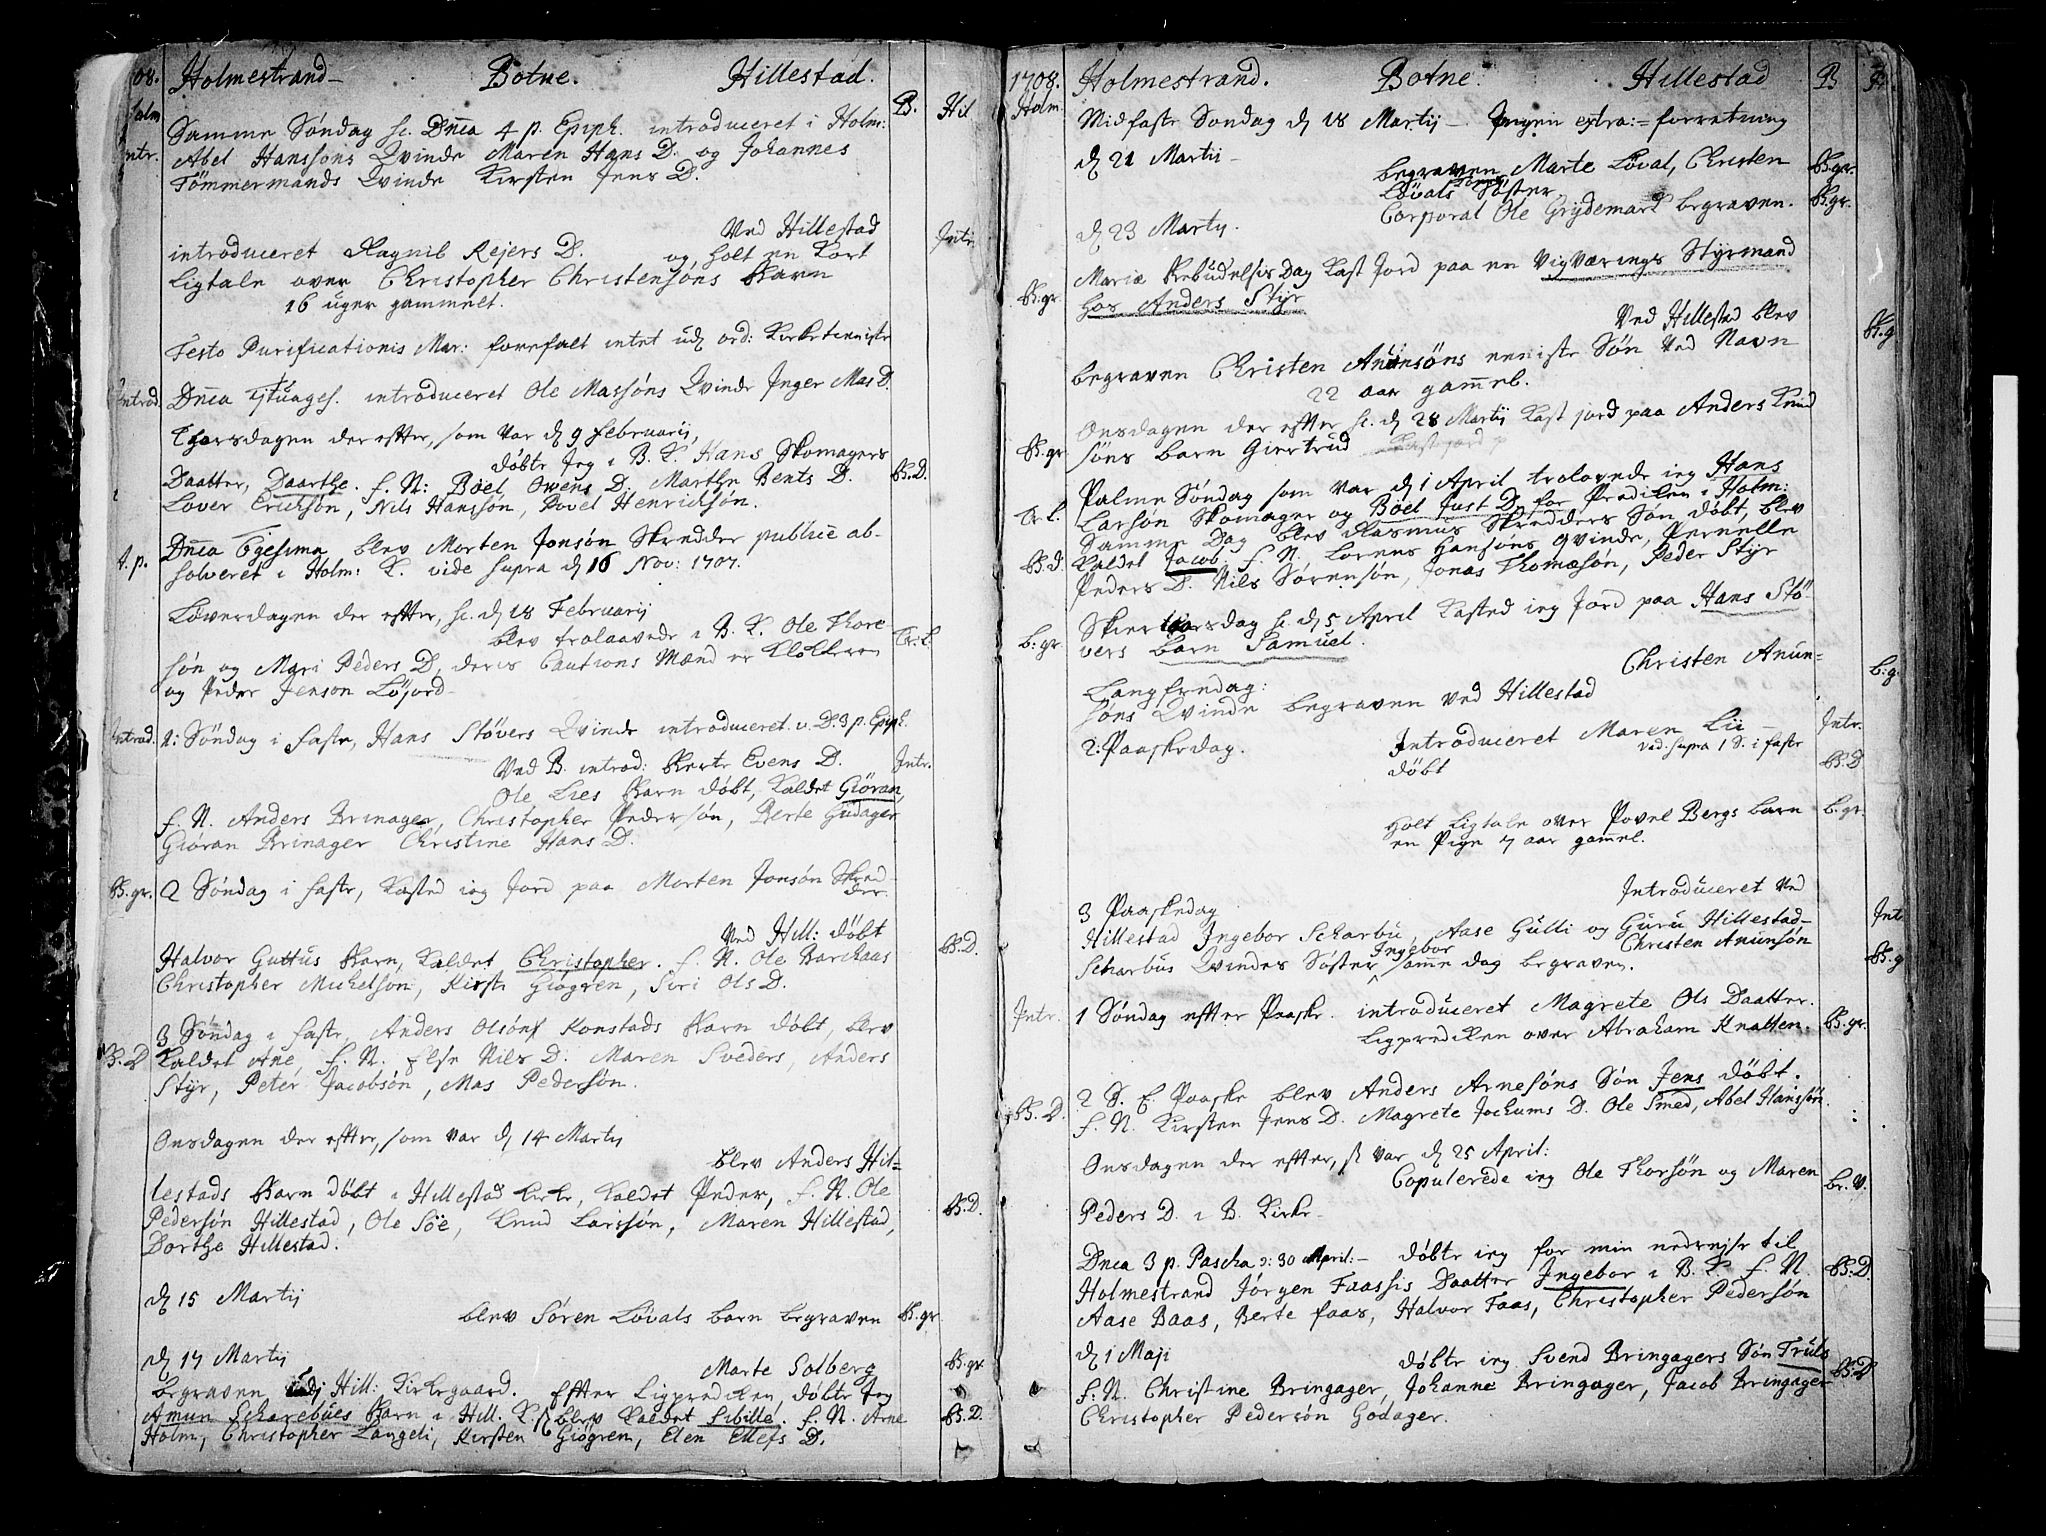 08. Holmestrand Botne. Hillestad.
Holm B. Hil
Samme Söndag sc. Dnĩca 4 p. Epiph. introduceret i Holm:
Intr. Abel Hanssöns Qvinde Maren Hans D. og Johannes
Tömmermands Qvinde Kirsten Jens D.
Ved Hillestad
introduceret Ragnil Rejers D. og holt en Kort Intr.
Ligtale over Christopher Christensöns Barn
16 uger gammelt.
Festo Purificationis Mar: forefalt intet ud ord: Kirketienniste
Introd. Dnĩca 7tuages. introduceret Ole Massöns Qvinde Inger Mas D.
Thorsdagen der efter, som var d 9 Februarij,
döbte Jeg i B. K. Hans Skomagers
Daatter, Daarthe. f. N: Boel Owens D. Marthe Bents D. B.D.
Lover Erichsön, Nils Hanssön, Povel Henrichsön.
Dnĩca 6gesima blev Morten Jonsön Skredder publicè ab-
A.p. solveret i Holm: K. vide supra d 16 Nov: 1707.
Löverdagen der efter, sc. d 18 Februarij
blev trolaavede i B. K. Ole Thore Tr:l.
sön og Mari Peders D. deris Cautions Mænd er Klokkeren
og Peder Jenson Löfjord
Introd. 1: Söndag i faste, Hans Stövers Qvinde introduceret v. D. 3 p. Epiph.
Ved B. introd: Berte Evens D. Intr.
Ole Lies Barn döbt, Kaldet Giöran,
f. N. Anders Brinager, Christopher Pedersön, Berte Gudager
Giöran Brinager Christine Hans D.
B.gr. 2 Söndag i faste, Kasted ieg Jord paa Morten Jonsön Skred-
der.
Ved Hill: döbt
Halvor Guttus Barn, Kaldet Christopher. f. N. Ole Barchaas B.D.
Christopher Michelson, Kirsti Giögren, Siri Ols D.
3 Söndag i faste, Anders Olsöns Konstads Barn döbt, blev
B.D Kaldet Ane, f. N. Else Nils D. Maren Sveders, Anders
Styr, Peter Jacobsön, Mas Pedersön.
Onsdagen der efter, som var d 14 Martij
blev Anders Hil-
lestads Barn döbt i Hillestad Kirke, Kaldet Peder, f. N. Ole
Pedersön Hillestad, Ole Söe, Knud Larssön, Maren Hillestad, B.D.
Dorthe Hillestad.
d 15 Martij
blev Sören Lövals barn begraven B.gr
d 17 Martij Marte Solberg B.gr.
begraven Hill: Kirkegaard. Efter Ligprediken döbte Jeg
Amun Scharebues Barn i Hill. K. blev Kaldet Sibille. f. N. Arne B.D.
Holm, Christopher Langeli, Kirsten Giögren, Elen Ellefs D.
1708. Holmestrand. Botne. Hillestad B
Holm. Midfaste Sondag d 18 Martij Ingen extra: forretning
d 21 Martij
begraven Marte Löval, Christen B.gr.
Lövals Söster
d 23 Martij. Corporal Ole Grydemark begraven. B.gr.
Mariæ Bebudelsis Dag Kast Jord paa en Vigværings Styrmand
B.gr. hos Anders Styr
Ved Hillestad blev
begraven Christen Anunsöns enniste Sön Ved Navn B.g
22 aar gam̃el.
Onsdagen der efter sc. d 28 Martij Kast jord paa Anders Knud
B.gr söns barn Giertrud
Palme Söndag som var d 1 April trolovede ieg Hans
Tr.l. Larsön Skomager og Boel Just D. for Prediken i Holm:
Samme Dag blev Rasmus Skredders Sön döbt, blev
B.d. Kaldet Jacob f. N. Lorens Hansöns qvinde, Pernelle
Peders D. Nils Sörensön, Jonas Thomæsön, Peder Styr
Skiertorsdag sc. d 5 April Kasted ieg Jord paa Hans Stö-
b:gr. vers barn Samuel.
Langfredag: Christen Anun- b:g.
söns Qvinde begraven ved Hillestad
2: Paaskedag. Introduceret Maren Lie Intr.
vid. supra 1 S. i faste
döbt B.D
Holt Ligtale over Povel Bergs barn b.gr.
en Pige 7 aar gam̃el.
Introduceret ved
3 Paaskedag
Hillestad Ingebor Scharbu, Aase Gulli og Guru Hillestad Int
Christen Anunsön
Scharbus Qvindes Söster Ingebor sam̃e dag begraven. B.g
Intr. 1 Söndag efter Paaske. introduceret Magrete Ols Daatter.
Ligprediken over Abraham Knatten. B.gr.
2 S. E. Paaske blev Anders Arnesöns Sön Jens döbt.
B.D. f. N. Kirsten Jens D. Magrete Jochums D. Ole Smed, Abel Hanssön.
Onsdagen der efter, var d 25 April:
Copulerede ieg Ole Thorsön og Maren br.V.
Peders D. i B. Kirke
Dnĩca 3 p. Pascha ɔ: 30 April: döbte ieg for min nedrejse til
Holmestrand Jörgen Faassis Daatter Ingebor i B. K. f. N. B:D.
Aase Baas, Berte faas, Halvor Faas, Christopher Pedersön
d 1 Maji döbte ieg Svend Bringagers Sön Truls
f. N. Christine Bringager, Johanne Bringager, Jacob Bringager B.D
Christopher Pedersön Godager.